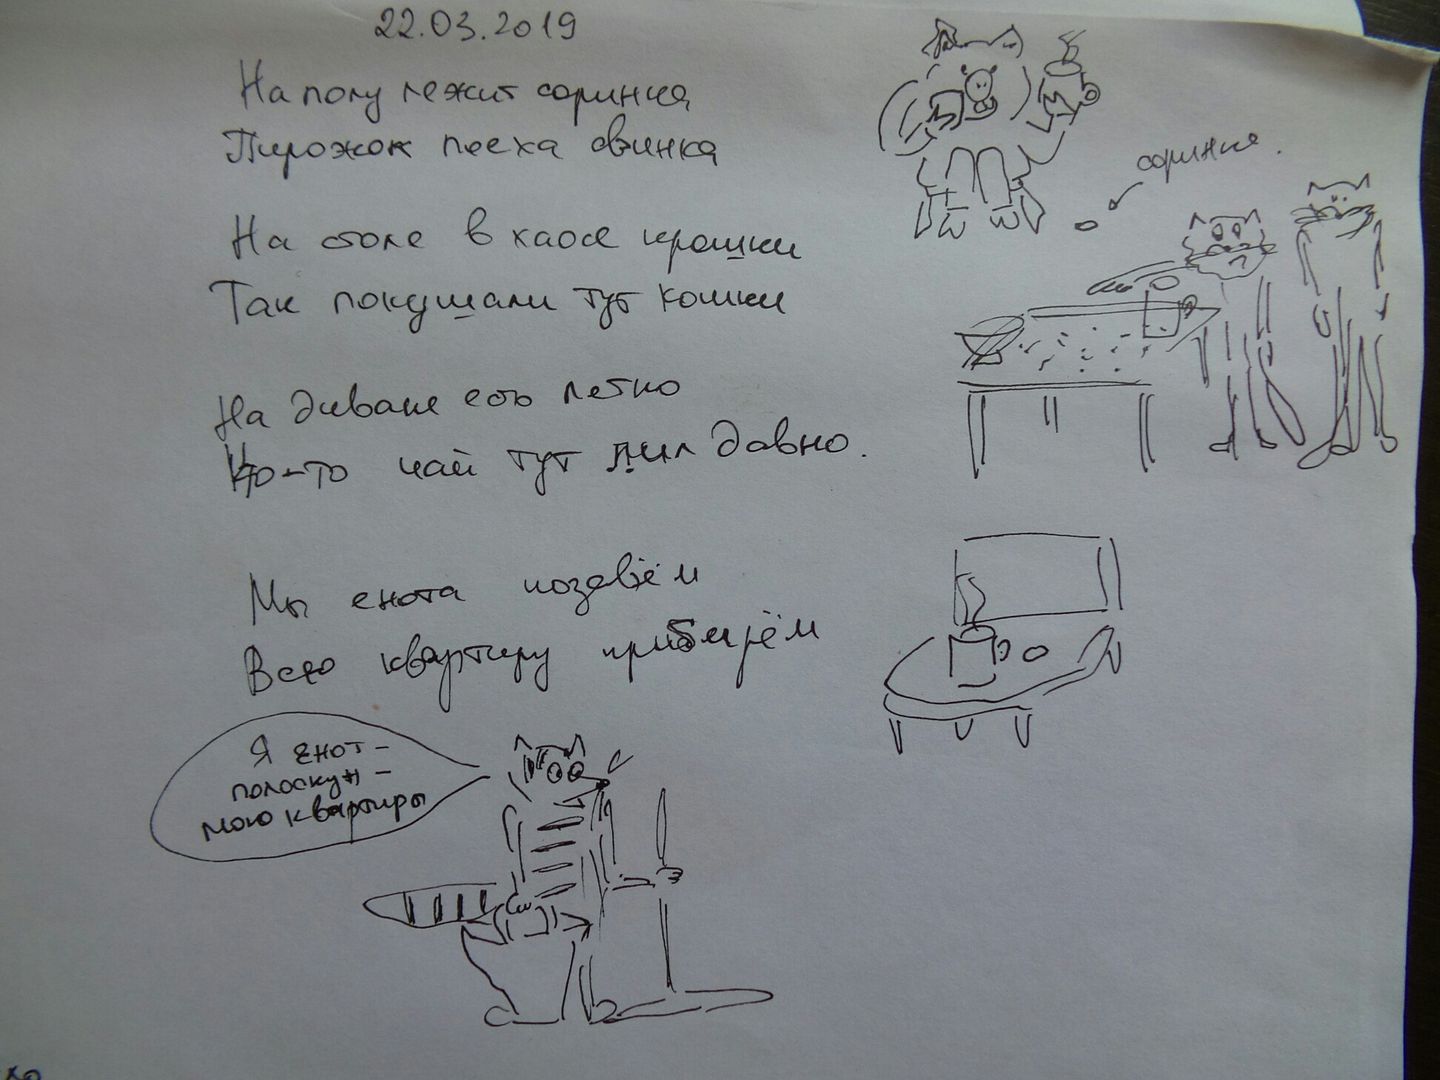 22.03.2019
На полу лежит соринка
Пирожок поеха свинка
соринка.
На столе в хаосе крошки
Так покушали тут кошки
На диване есь петно
Кто-то чай тут пил давно.
Мы енота позовём
Всю квартиру приберём
Я енот-
полоскун -
мою квартиры